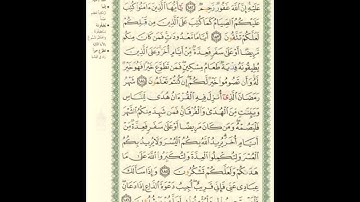 عَلَيْهِ إِنَّ ٱللَّهَ غَفُورٌ رَّحِيمٌ ۝ يَٰٓأَيُّهَا ٱلَّذِينَ ءَامَنُوا۟ كُتِبَ
عَلَيْكُمُ ٱلصِّيَامُ كَمَا كُتِبَ عَلَى ٱلَّذِينَ مِن قَبْلِكُمْ
لَعَلَّكُمْ تَتَّقُونَ ۝ أَيَّامًا مَّعْدُودَٰتٍ فَمَن كَانَ مِنكُم
مَّرِيضًا أَوْ عَلَىٰ سَفَرٍ فَعِدَّةٌ مِّنْ أَيَّامٍ أُخَرَ وَعَلَى ٱلَّذِينَ
يُطِيقُونَهُۥ فِدْيَةٌ طَعَامُ مِسْكِينٍ فَمَن تَطَوَّعَ خَيْرًا فَهُوَ خَيْرٌ
لَّهُۥ وَأَن تَصُومُوا۟ خَيْرٌ لَّكُمْ إِن كُنتُمْ تَعْلَمُونَ ۝ شَهْرُ
رَمَضَانَ ٱلَّذِىٓ أُنزِلَ فِيهِ ٱلْقُرْءَانُ هُدًى لِّلنَّاسِ
وَبَيِّنَٰتٍ مِّنَ ٱلْهُدَىٰ وَٱلْفُرْقَانِ فَمَن شَهِدَ مِنكُمُ ٱلشَّهْرَ
فَلْيَصُمْهُ وَمَن كَانَ مَرِيضًا أَوْ عَلَىٰ سَفَرٍ فَعِدَّةٌ مِّنْ
أَيَّامٍ أُخَرَ يُرِيدُ ٱللَّهُ بِكُمُ ٱلْيُسْرَ وَلَا يُرِيدُ بِكُمُ
ٱلْعُسْرَ وَلِتُكْمِلُوا۟ ٱلْعِدَّةَ وَلِتُكَبِّرُوا۟ ٱللَّهَ عَلَىٰ مَا
هَدَىٰكُمْ وَلَعَلَّكُمْ تَشْكُرُونَ ۝ وَإِذَا سَأَلَكَ
عِبَادِى عَنِّى فَإِنِّى قَرِيبٌ أُجِيبُ دَعْوَةَ ٱلدَّاعِ إِذَا دَعَانِ